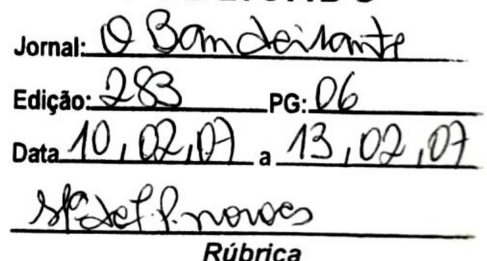 Jornal: O Bandeirante
Edição: 283 PG: 06
Data 10, 02, 07 a 13, 02, 07
Rúbrica